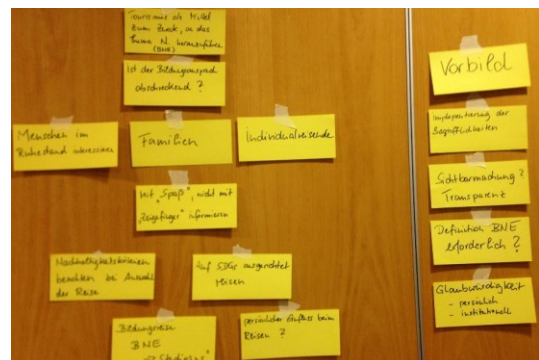 Tourismus als Mittel
zum Zweck, an das
Thema N. heranzuführen
(BNE)
Ist der Bildungsanspruch
abschreckend ?
Menschen im
Ruhestand interessieren
Familien
Individualreisende
Mit "Spaß", nicht mit
"Zeigefinger" informieren
Nachhaltigkeitskriterien
beachten bei Auswahl
der Reise
Auf SDGs ausgerichtet
Reisen
Bildungsreise
BNE
"Studiosus"
persönlicher Einfluss beim
Reisen ?
Vorbild
Implementierung der
Begrifflichkeiten
Sichtbarmachung ?
Transparenz
Definition BNE
erforderlich ?
Glaubwürdigkeit
- persönlich
- institutionell